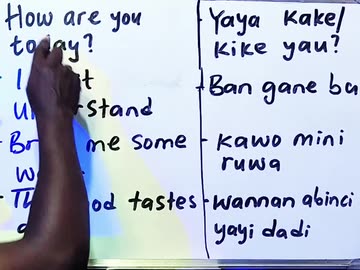 How are you
today?
- I
understand
me some
food tastes
Yaya kake/
kike yau?
- Ban gane ba
- kawo mini
ruwa
- wannan abinci
yayi dadi